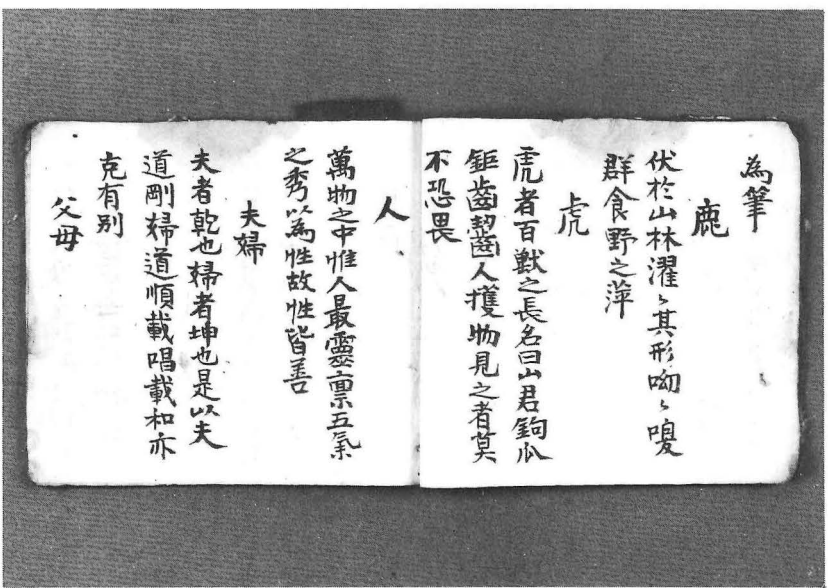 為筆
鹿
伏於山林濯〻其形呦〻嗄
群食野之萍
虎
虎者百獸之長名曰山君鉤瓜
鉅齒齧人攫物見之者莫
不恐畏
人
萬物之中惟人最靈禀五氣
之秀以為性故性皆善
夫婦
夫者乾也婦者坤也是以夫
道剛婦道順載唱載和亦
克有别
父母